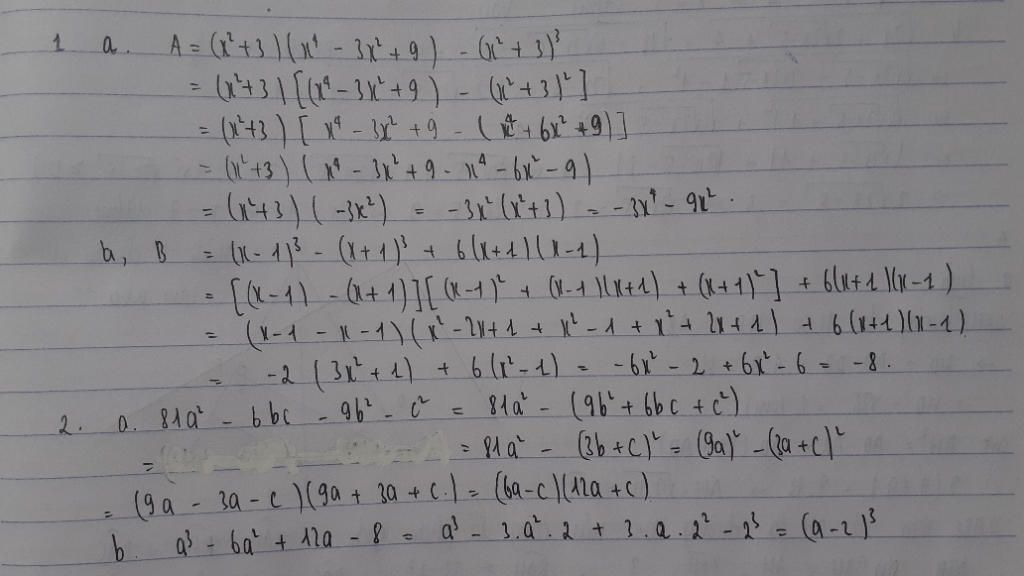 1 a. A = (x²+3)(x⁴ - 3x² + 9) - (x² + 3)³
= (x²+3)[(x⁴ - 3x² + 9) - (x² + 3)²]
= (x²+3)[x⁴ - 3x² + 9 - (x⁴ + 6x² + 9)]
= (x²+3)(x⁴ - 3x² + 9 - x⁴ - 6x² - 9)
= (x²+3)(-3x²) = -3x²(x²+3) = -3x⁴ - 9x².
b, B = (x-1)³ - (x+1)³ + 6(x+1)(x-1)
= [(x-1) - (x+1)][(x-1)² + (x-1)(x+1) + (x+1)²] + 6(x+1)(x-1)
= (x-1 - x-1)(x² - 2x+1 + x² - 1 + x² + 2x+1) + 6(x+1)(x-1)
= -2(3x²+1) + 6(x²-1) = -6x² - 2 + 6x² - 6 = -8.
2. a. 81a² - 6bc - 9b² - c² = 81a² - (9b² + 6bc + c²)
= = 81a² - (3b+c)² = (9a)² - (3a+c)²
= (9a - 3a - c)(9a + 3a + c) = (6a-c)(12a+c)
b. a³ - 6a² + 12a - 8 = a³ - 3.a².2 + 3.a.2² - 2³ = (a-2)³